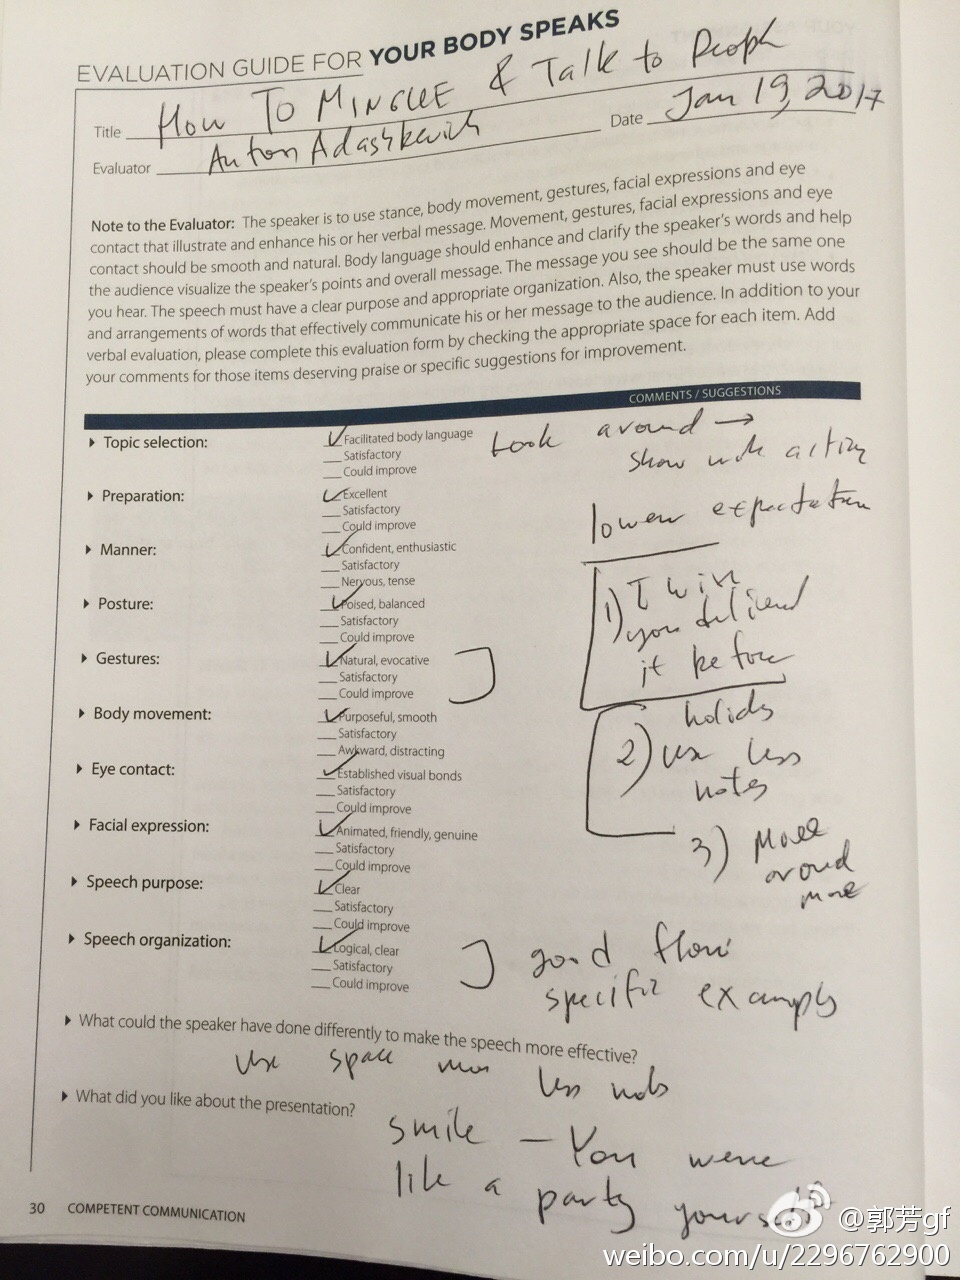 EVALUATION GUIDE FOR YOUR BODY SPEAKS
Title How To MINGLE & Talk to People
Evaluator Anton Adashkevich
Date Jan 19, 2017
Note to the Evaluator: The speaker is to use stance, body movement, gestures, facial expressions and eye
contact that illustrate and enhance his or her verbal message. Movement, gestures, facial expressions and eye
contact should be smooth and natural. Body language should enhance and clarify the speaker's words and help
the audience visualize the speaker's points and overall message. The message you see should be the same one
you hear. The speech must have a clear purpose and appropriate organization. Also, the speaker must use words
and arrangements of words that effectively communicate his or her message to the audience. In addition to your
verbal evaluation, please complete this evaluation form by checking the appropriate space for each item. Add
your comments for those items deserving praise or specific suggestions for improvement.
COMMENTS / SUGGESTIONS
Topic selection:
Facilitated body language
Satisfactory
Could improve
Look around →
show with action
Preparation:
Excellent
Satisfactory
Could improve
lower expectation
Manner:
Confident, enthusiastic
Satisfactory
Nervous, tense
Posture:
Poised, balanced
Satisfactory
Could improve
1) I wish
you delivered
it before
holids
Gestures:
Natural, evocative
Satisfactory
Could improve
Body movement:
Purposeful, smooth
Satisfactory
Awkward, distracting
2) use less
notes
Eye contact:
Established visual bonds
Satisfactory
Could improve
Facial expression:
Animated, friendly, genuine
Satisfactory
Could improve
3) Move
around
more
Speech purpose:
Clear
Satisfactory
Could improve
Speech organization:
Logical, clear
Satisfactory
Could improve
good flow
specific examples
What could the speaker have done differently to make the speech more effective?
Use space more less nots
What did you like about the presentation?
smile — You were
like a party yourself
30 COMPETENT COMMUNICATION
@郭芳gf
weibo.com/u/2296762900